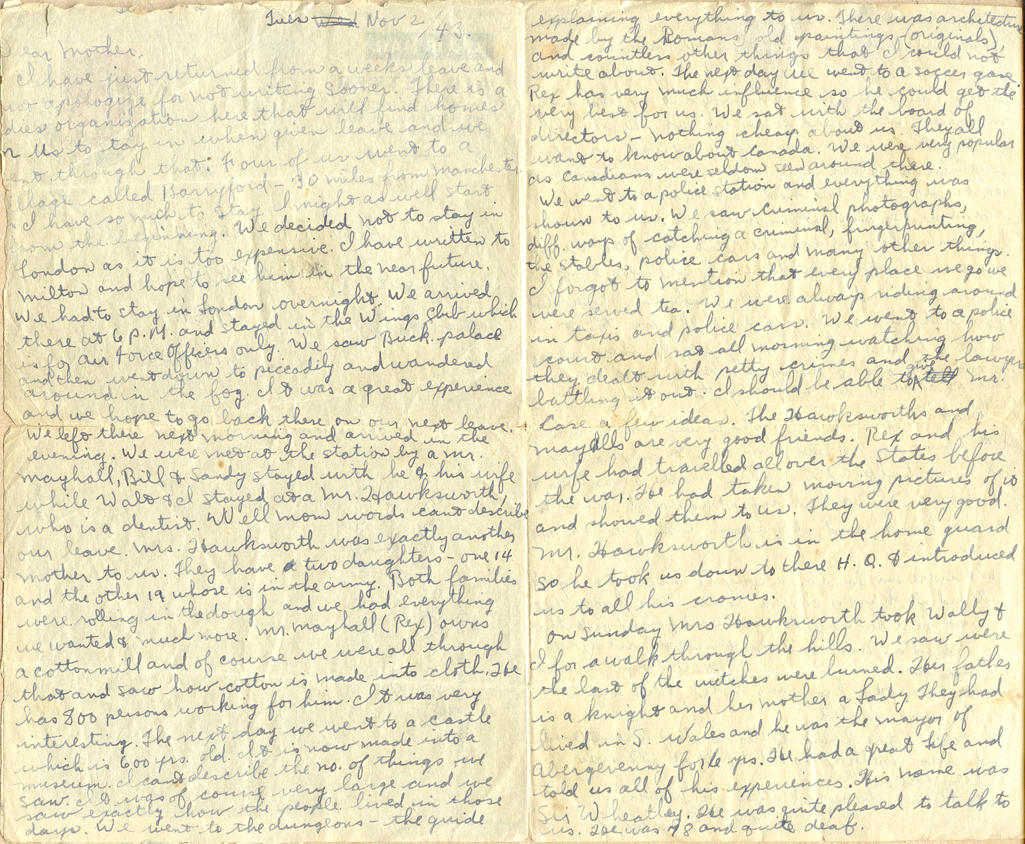 Tues Nov 2/43.
Dear Mother,
I have just returned from a weeks leave and
apologize for not writing sooner. There is a
organization here that will find homes
us to stay in when given leave and we
through that. Four of us went to a
called Barryford - 30 miles from Manchester.
I have so much to stay I might as well start
from the beginning. We decided not to stay in
London as it is too expensive. I have written to
Milton and hope to see him in the near future.
We had to stay in London overnight. We arrived
there at 6 P.M. and stayed in the Wings Club which
is for Air Force Officers only. We saw Buck. palace
and then went down to piccadily and wandered
around in the fog. It was a great experience
and we hope to go back there on our next leave.
We left there next morning and arrived in the
evening. We were met at the station by a Mr.
Mayhall, Bill & Sandy stayed with he & his wife
while Walt & I stayed at a Mr. Hawksworth,
who is a dentist. Well mom words cant describe
our leave. Mrs. Hawksworth was exactly another
mother to us. They have two daughters - one 14
and the other 19 whose is in the army. Both families
were rolling in the dough and we had everything
we wanted & much more. Mr. Mayhall (Rex) owns
a cotton mill and of course we were all through
that and saw how cotton is made into cloth. He
has 800 persons working for him. It was very
interesting. The next day we went to a castle
which is 600 yrs. old. It is now made into a
museum. I cant describe the no. of things we
saw. It was of course very large and we
saw exactly how the people lived in those
days. We went to the dungeons - the guide
explaining everything to us. There was architecture
made by the Romans, old paintings (originals)
and countless other things that I could not
write about. The next day we went to a soccer game
Rex has very much influence so he could get the
very best for us. We sat with the board of
directors - nothing cheap about us. They all
want to know about Canada. We were very popular
as Canadians were seldom seen around there.
We went to a police station and everything was
shown to us. We saw criminal photographs,
diff. ways of catching a criminal, fingerprinting,
the stables, police cars and many other things.
I forgot to mention that every place we go we
were served tea. We were always riding around
in taxis and police cars. We went to a police
court and sat all morning watching how
they dealt with petty crimes and the lawyer
battling it out. I should be able to give Mr.
Case a few ideas. The Hawksworths and
Mayalls are very good friends. Rex and his
wife had travelled all over the States before
the war. He had taken moving pictures of it
and showed them to us. They were very good.
Mr. Hawksworth is in the home guard
so he took us down to there H.Q. & introduced
us to all his cronies.
On Sunday Mrs Hawksworth took Wally &
I for a walk through the hills. We saw were
the last of the witches were burned. Her father
is a knight and her mother a Lady. They had
lived in S. Wales and he was the mayor of
Abergevenny for 6 yrs. He had a great life and
told us all of his experiences. His name was
Sir Wheatley. He was quite pleased to talk to
us. He was 78 and quite deaf.